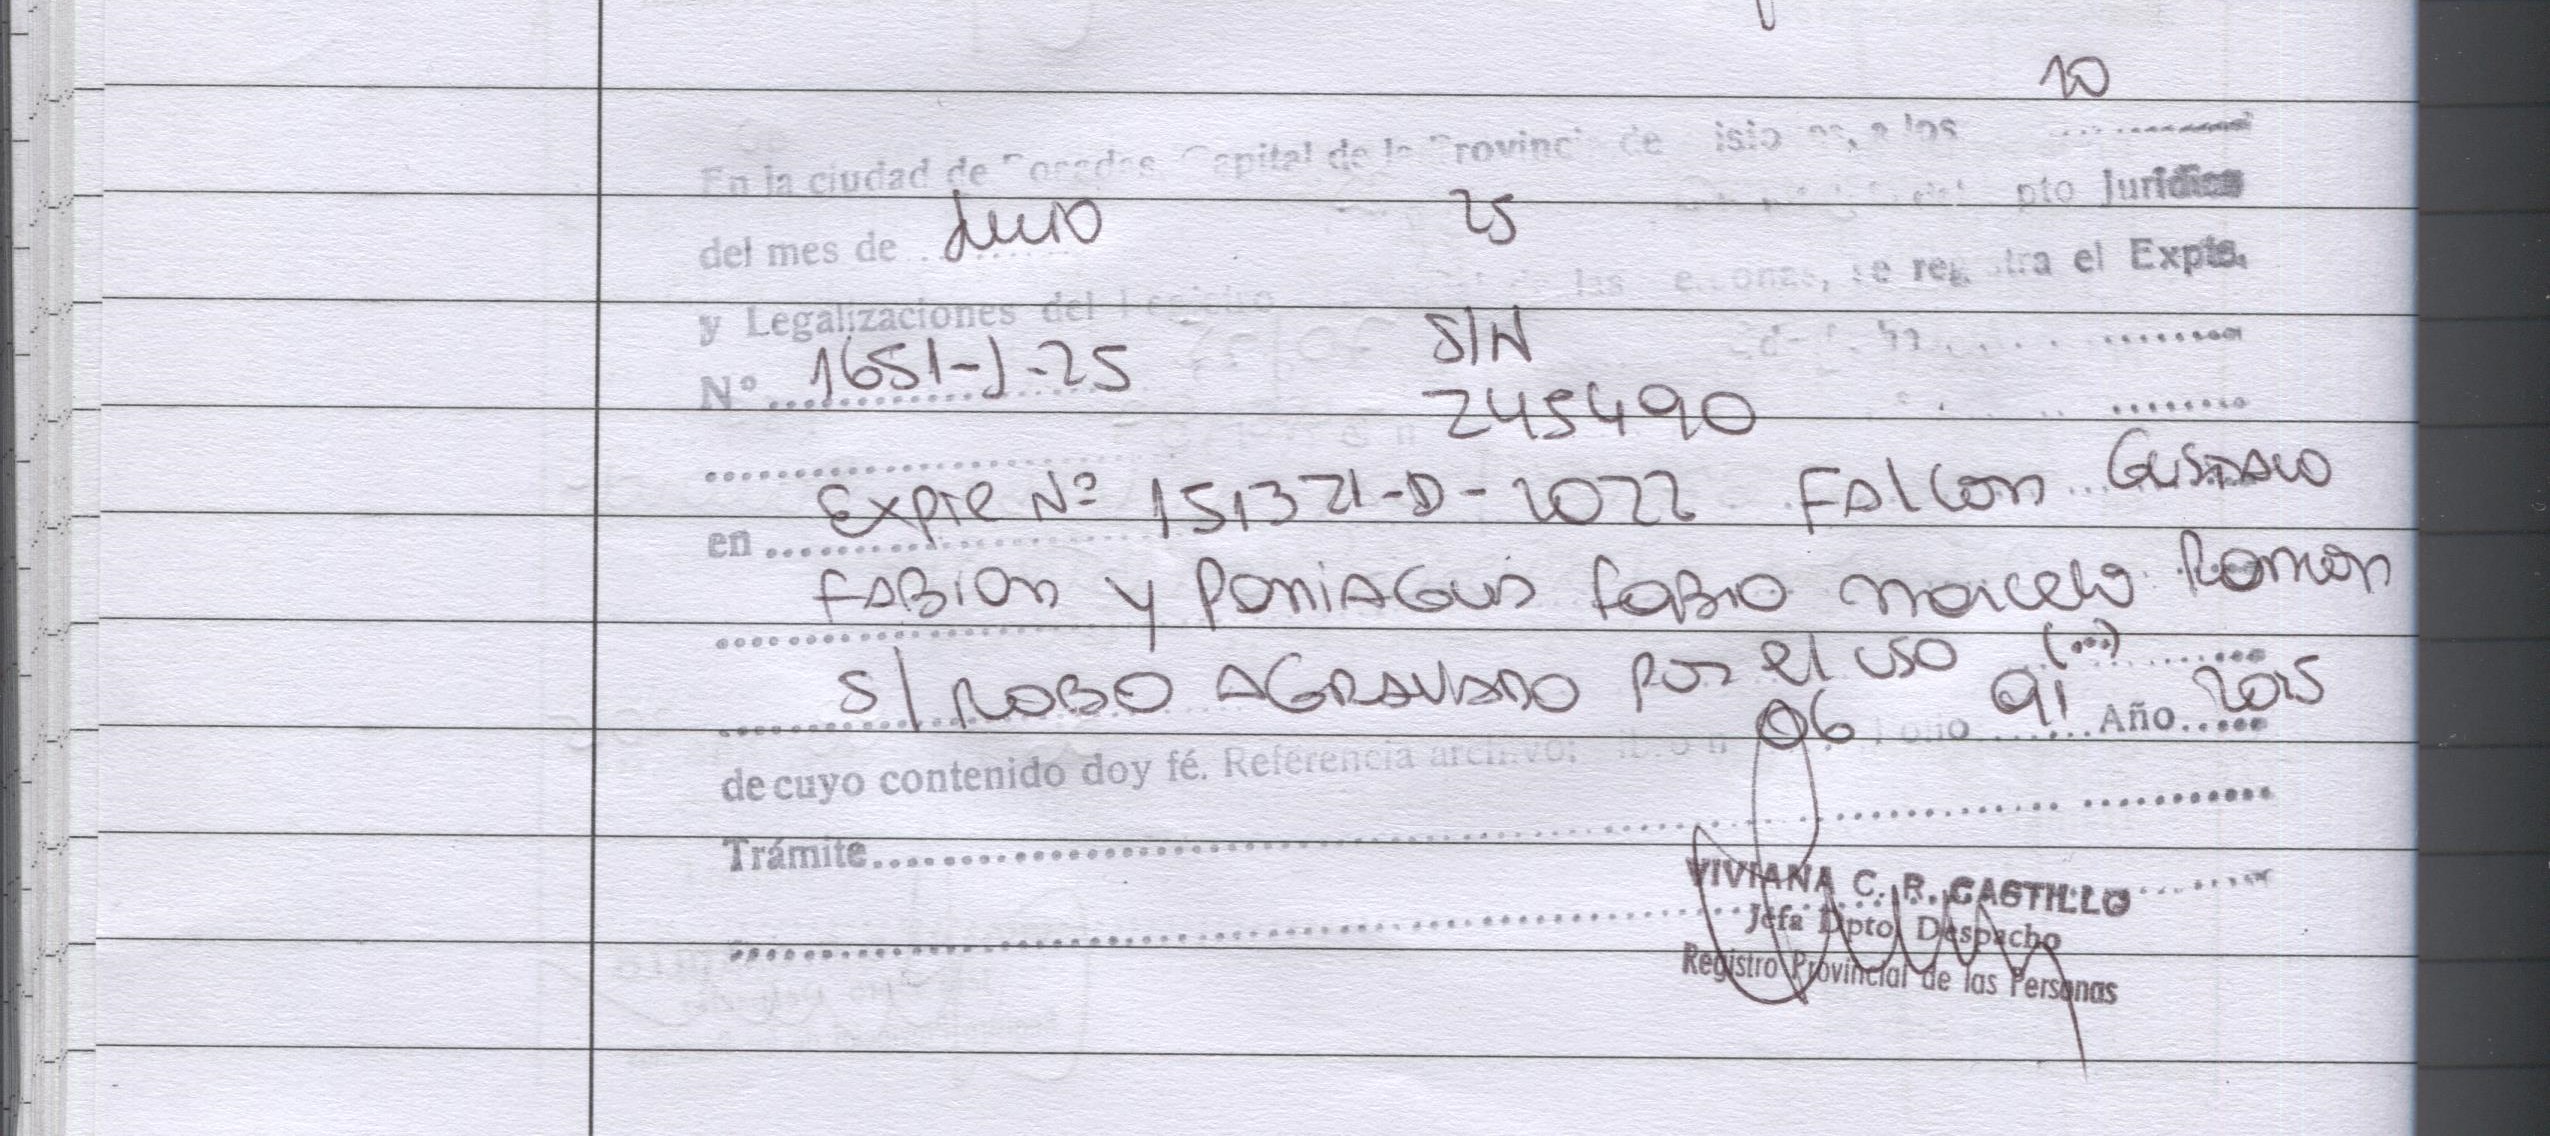 10
En la ciudad de Posadas, Capital de la Provincia de Misiones, a los
del mes de Julio 25 Dpto Jurídico
y Legalizaciones del Registro de las Personas, se registra el Expte.
Nº 1651-J-25 S/N
245490
en Expte Nº 151321-D-2022 Falcon Gustavo
Fabion y Poniagua Fabio Marcelo Ramon
S/ Robo Agravado por el uso (...)
de cuyo contenido doy fé. Referencia archivo: Libro n 06 Folio 91 Año 2025
Trámite
VIVIANA C. R. CASTILLO
Jefa Dpto Despacho
Registro Provincial de las Personas